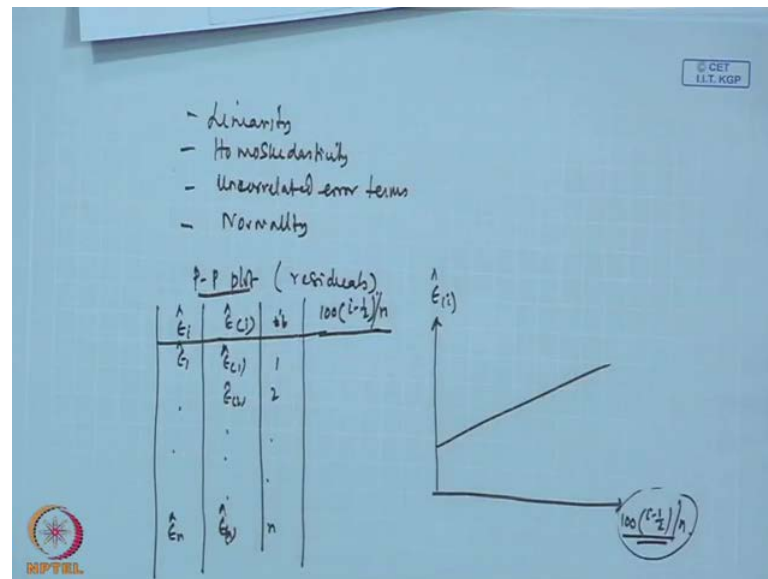 © CET
I.I.T. KGP
- Linearity
- Homoskedasticity
- Uncorrelated error terms
- Normality
P-P plot (residuals)
ε̂i ε̂(i) 100(i-½)/n
ε̂1 ε̂(1) 1
. ε̂(2) 2
. . .
. . .
ε̂n ε̂(n) n
ε̂(i)
100(i-½)/n
NPTEL